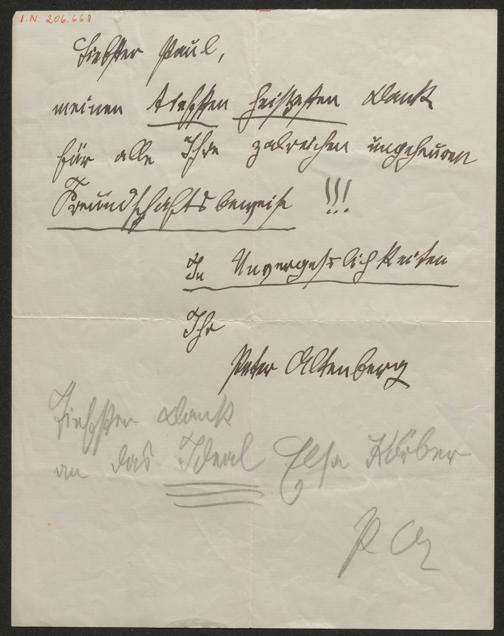 I.N. 206.668
Liebster Paul,
meinen tiefsten heissesten Dank
für alle Ihre zalreichen ungeheuren
Freundschaftsbeweise !!!
In Unvergesslichkeiten
Ihr
Peter Altenberg
Tiefster Dank
an das Ideal Elsa Körber
PA